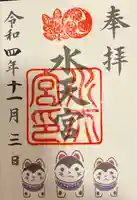 奉拝
水天宮
令和四年十一月三日